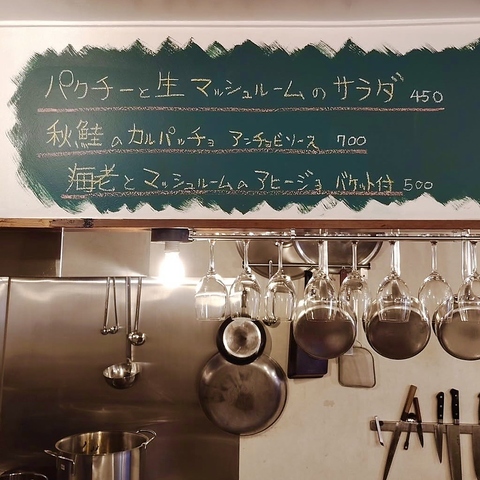 パクチーと生マッシュルームのサラダ 450
秋鮭のカルパッチョ アンチョビソース 700
海老とマッシュルームのアヒージョ バケット付 500